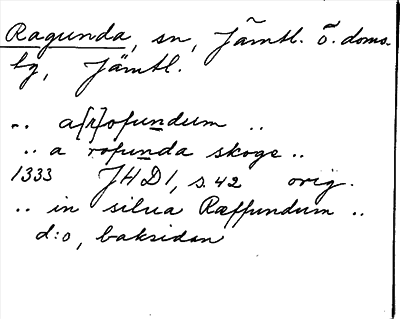 Ragunda, sn, Jämtl. ö. doms-
lg, Jämtl.
.. a[r]ofundum ..
.. a rofunda skoge ..
1333 JHD1, s. 42 orig.
.. in silua Ræffundum ..
d:o, baksidan